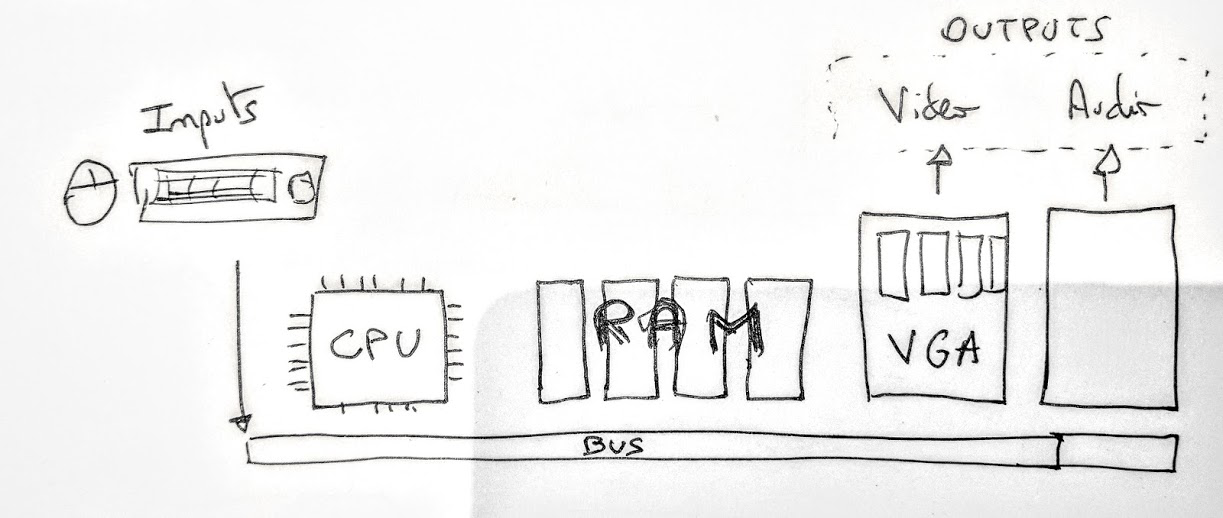 OUTPUTS
Video Audio
Inputs
CPU
RAM
VGA
BUS